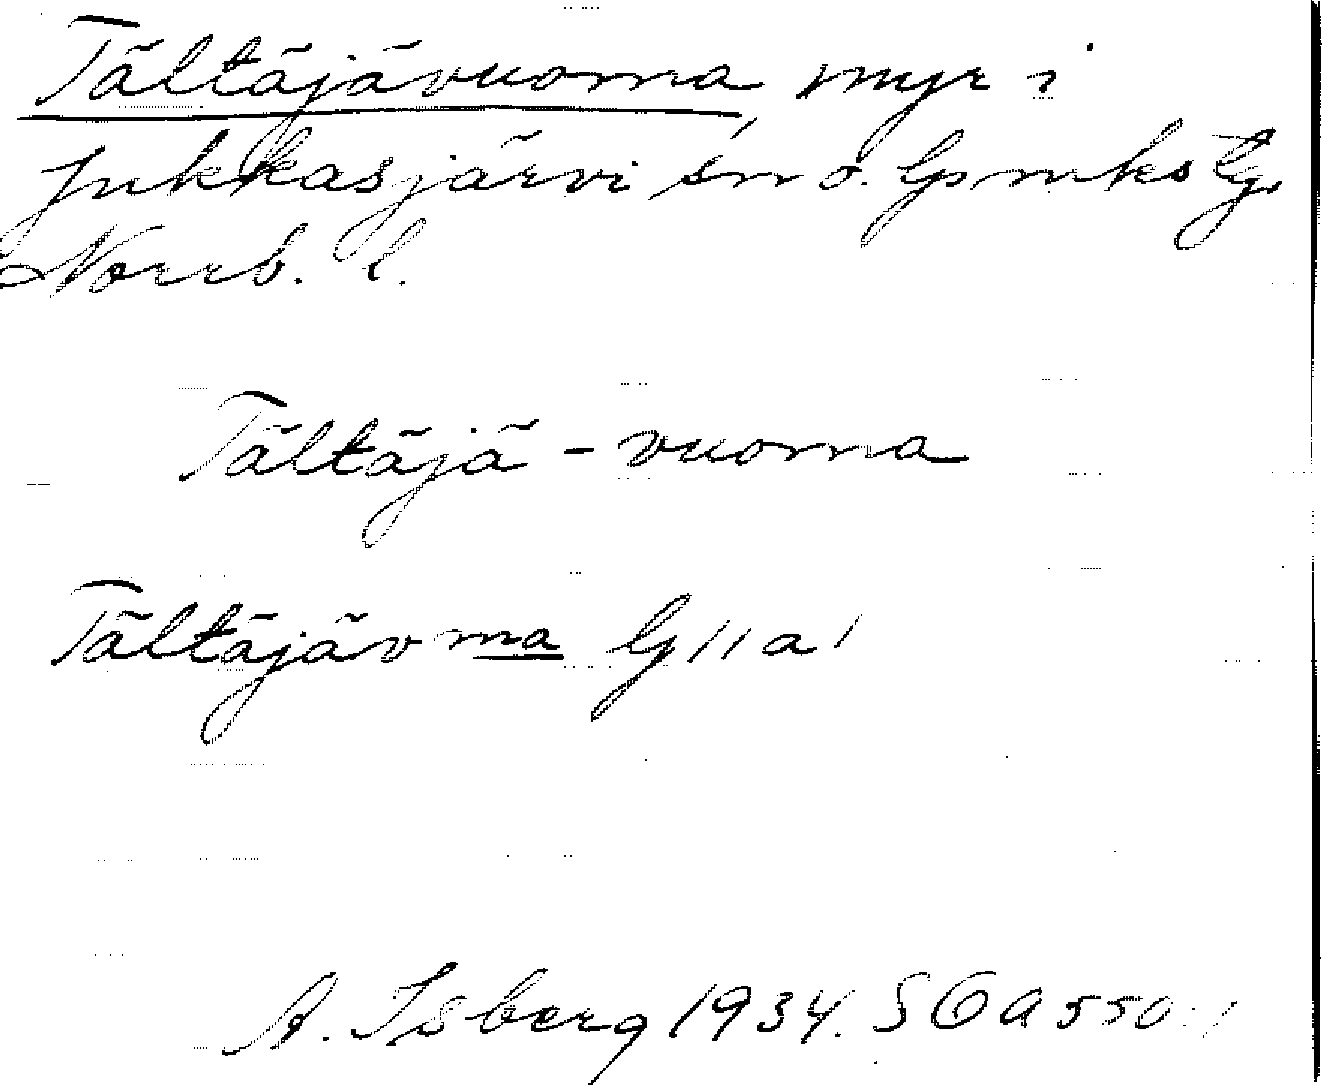 Tältäjävuoma myr i
Jukkasjärvi sn o. lpmks tg.
Norrb. l.
Tältäjä - vuoma
Tältäjävma G 11 a 1
A. Isberg 1934. SOA 550:1